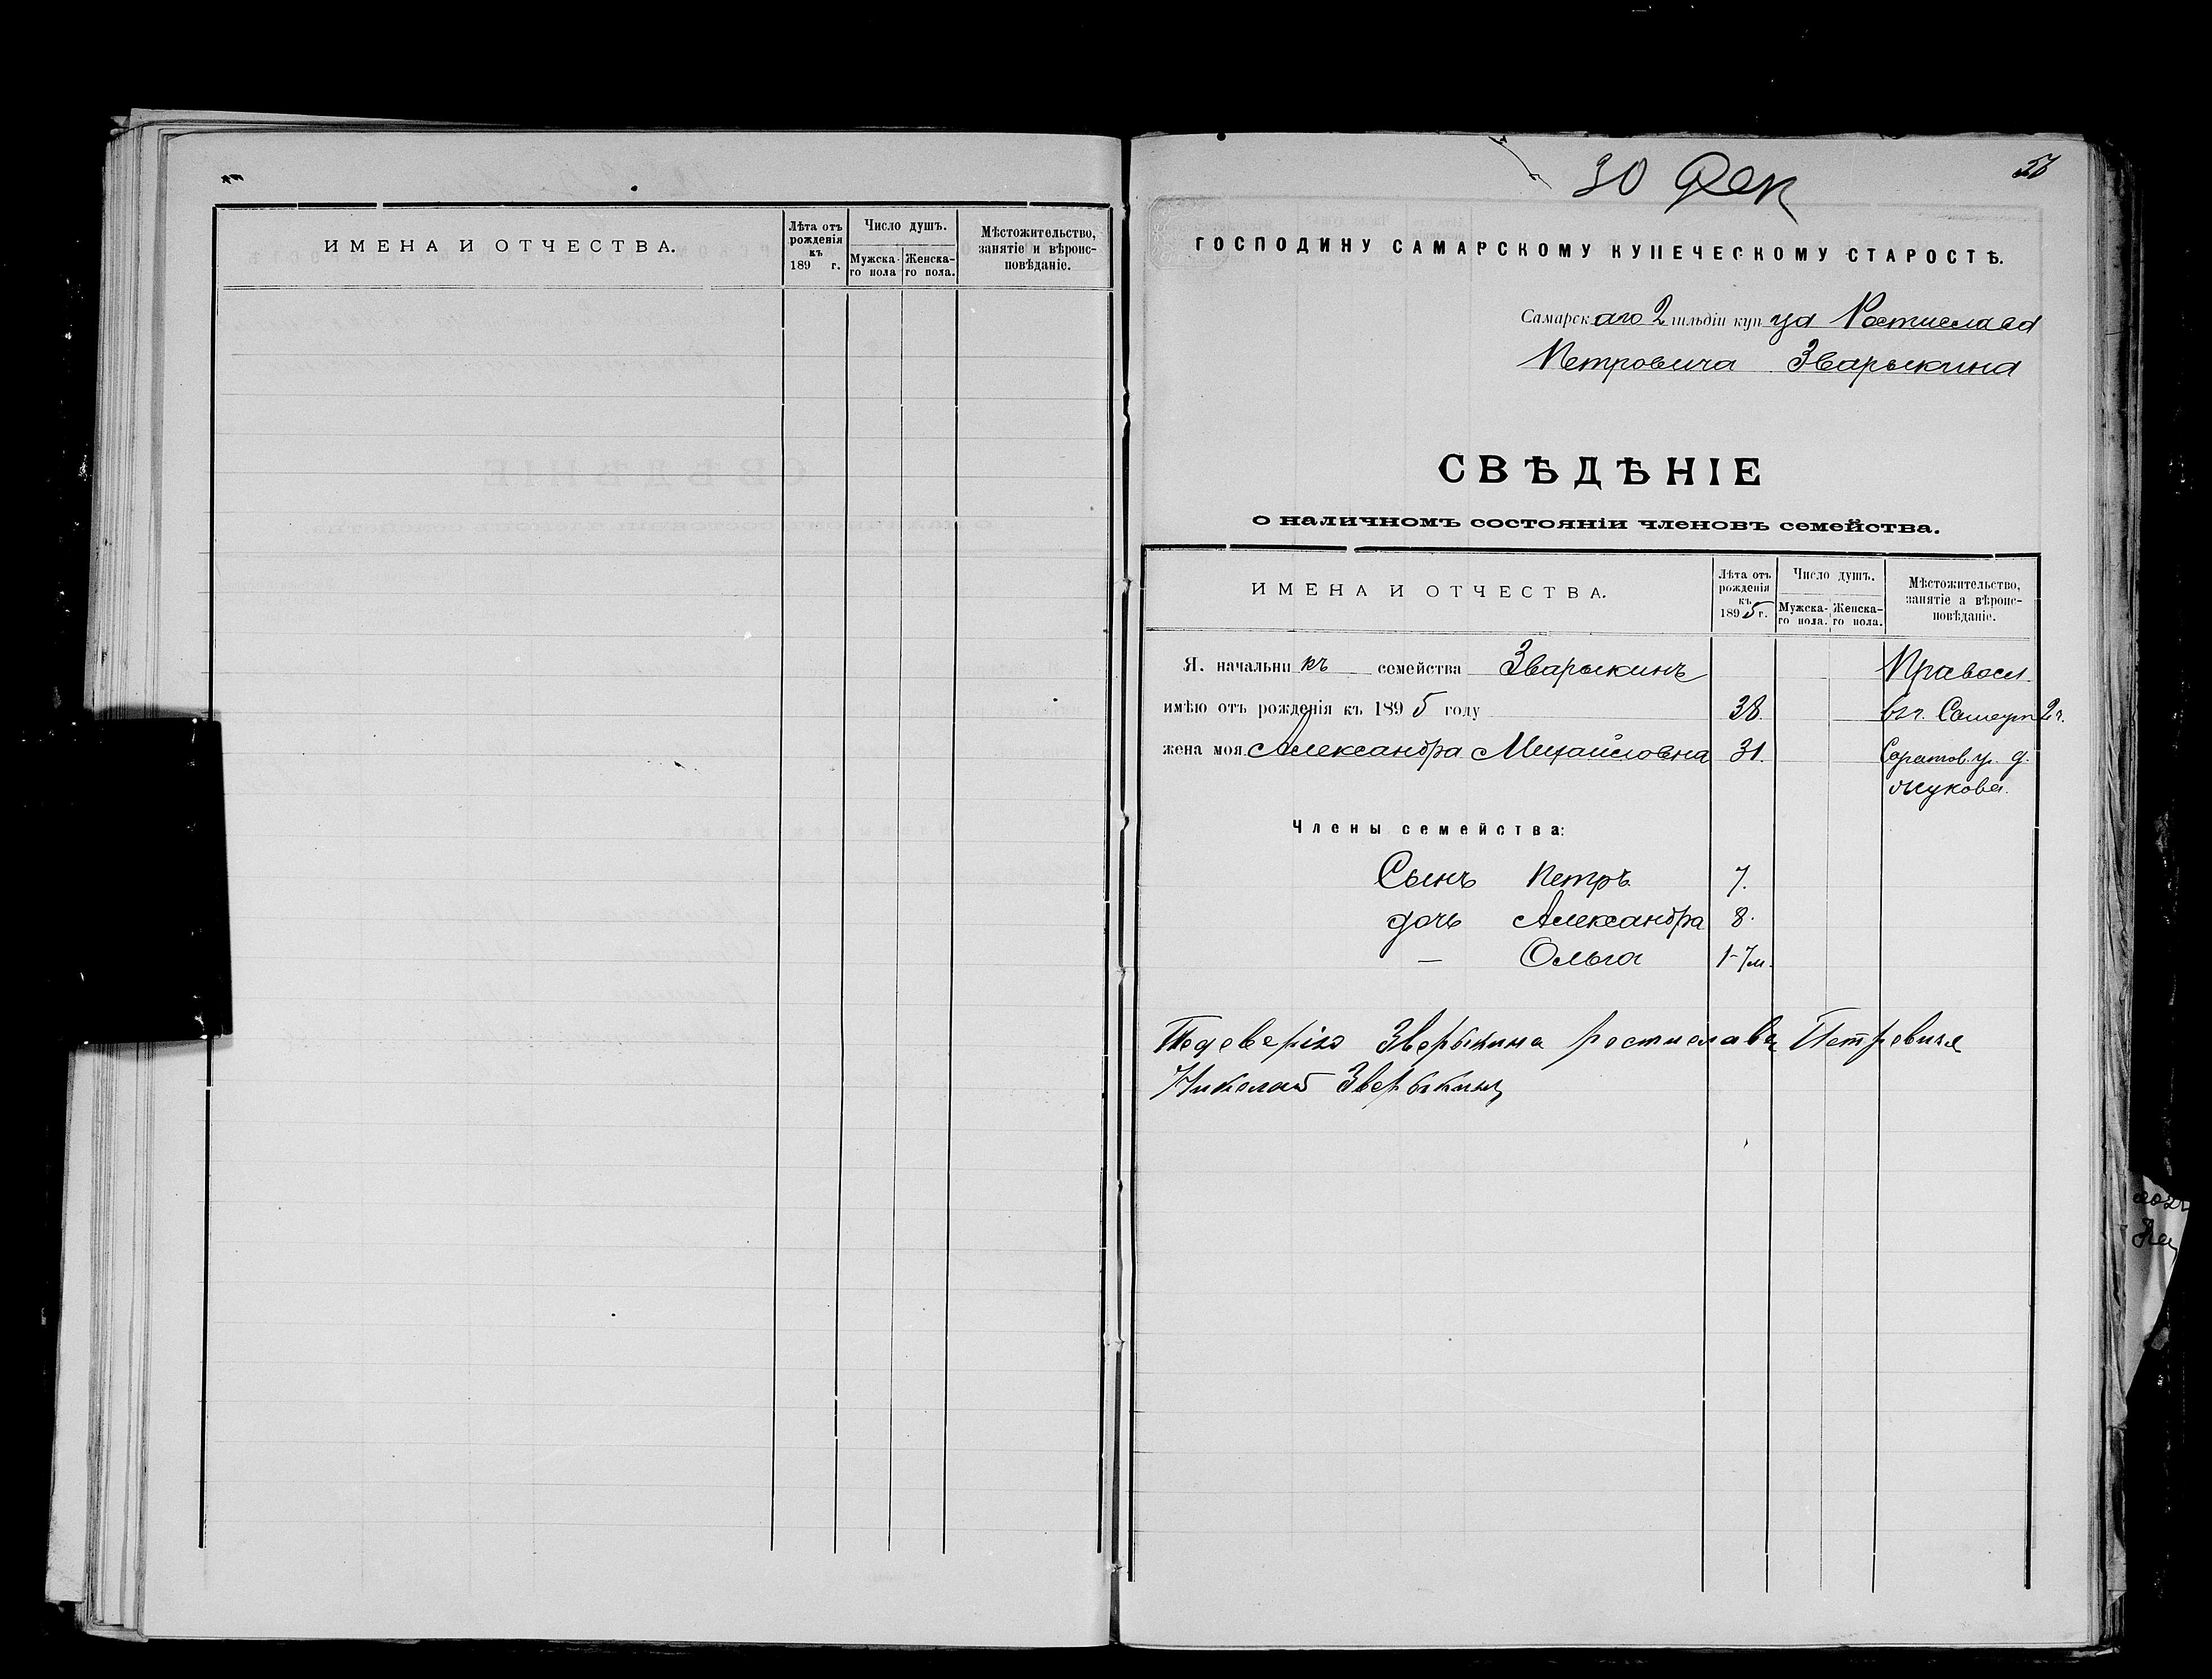 ИМЕНА И ОТЧЕСТВА.
Лѣта отъ рожденія къ 189 г.
Число душъ.
Мужска-го пола
Женска-го пола.
Мѣстожительство, занятіе и вѣроис-повѣданіе.
30 Дек
ГОСПОДИНУ САМАРСКОМУ КУПЕЧЕСКОМУ СТАРОСТѢ.
Самарскаго 2 гильдіи купца Ростислава
Петровича Зварыкина
СВѢДѢНІЕ
о наличномъ состояніи членовъ семейства.
ИМЕНА И ОТЧЕСТВА.
Лѣта отъ рожденія къ 1895 г.
Число душъ.
Мужска-го пола.
Женска-го пола.
Мѣстожительство, занятіе а вѣроис-повѣданіе.
Я, начальникъ семейства Зварыкинъ Правосл.
имѣю отъ рожденія къ 1895 году 38. 2ч.
жена моя Александра Михайловна 31. Саратов. у. д.
Жукова.
Члены семейства:
Сынъ Петръ 7.
дочь Александра 8.
— Ольга 1-7м.
Зварыкина Ростислава Петровича
Николай Зварыкинъ